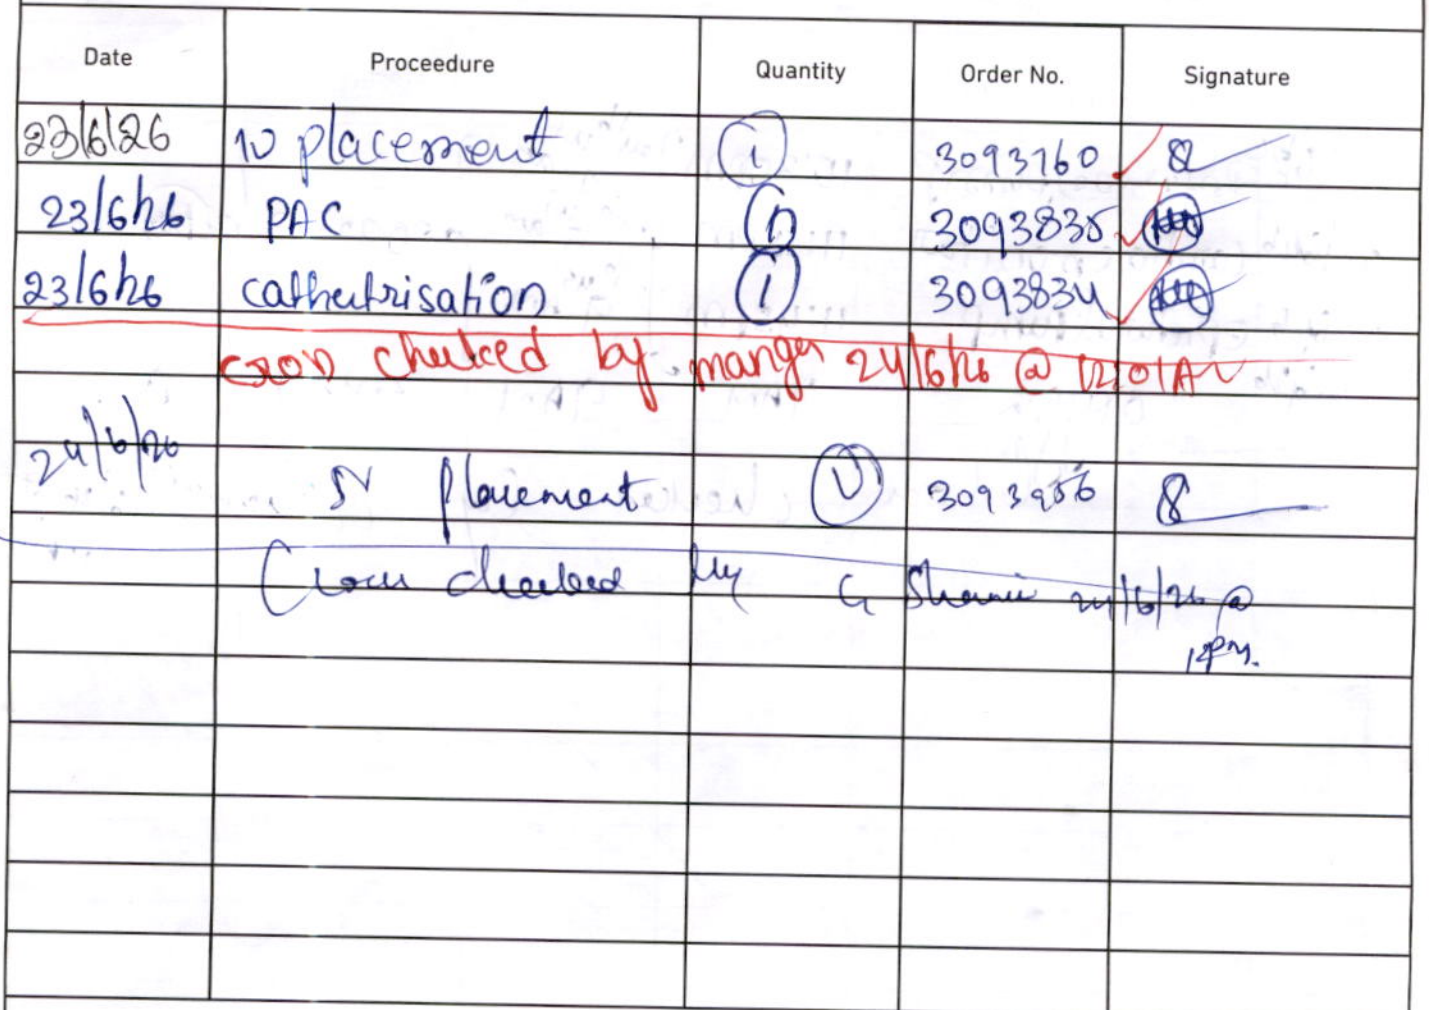 Date Proceedure Quantity Order No. Signature
23/6/26 IV placement 1 3093760
23/6/26 PAC 1 3093835
23/6/26 cathutrisation 1 3093834
cross checked by 24/6/26 @ 12:01A
24/6/26 IV Placement 1 3093956
Cross checked by G 24/6/26 @